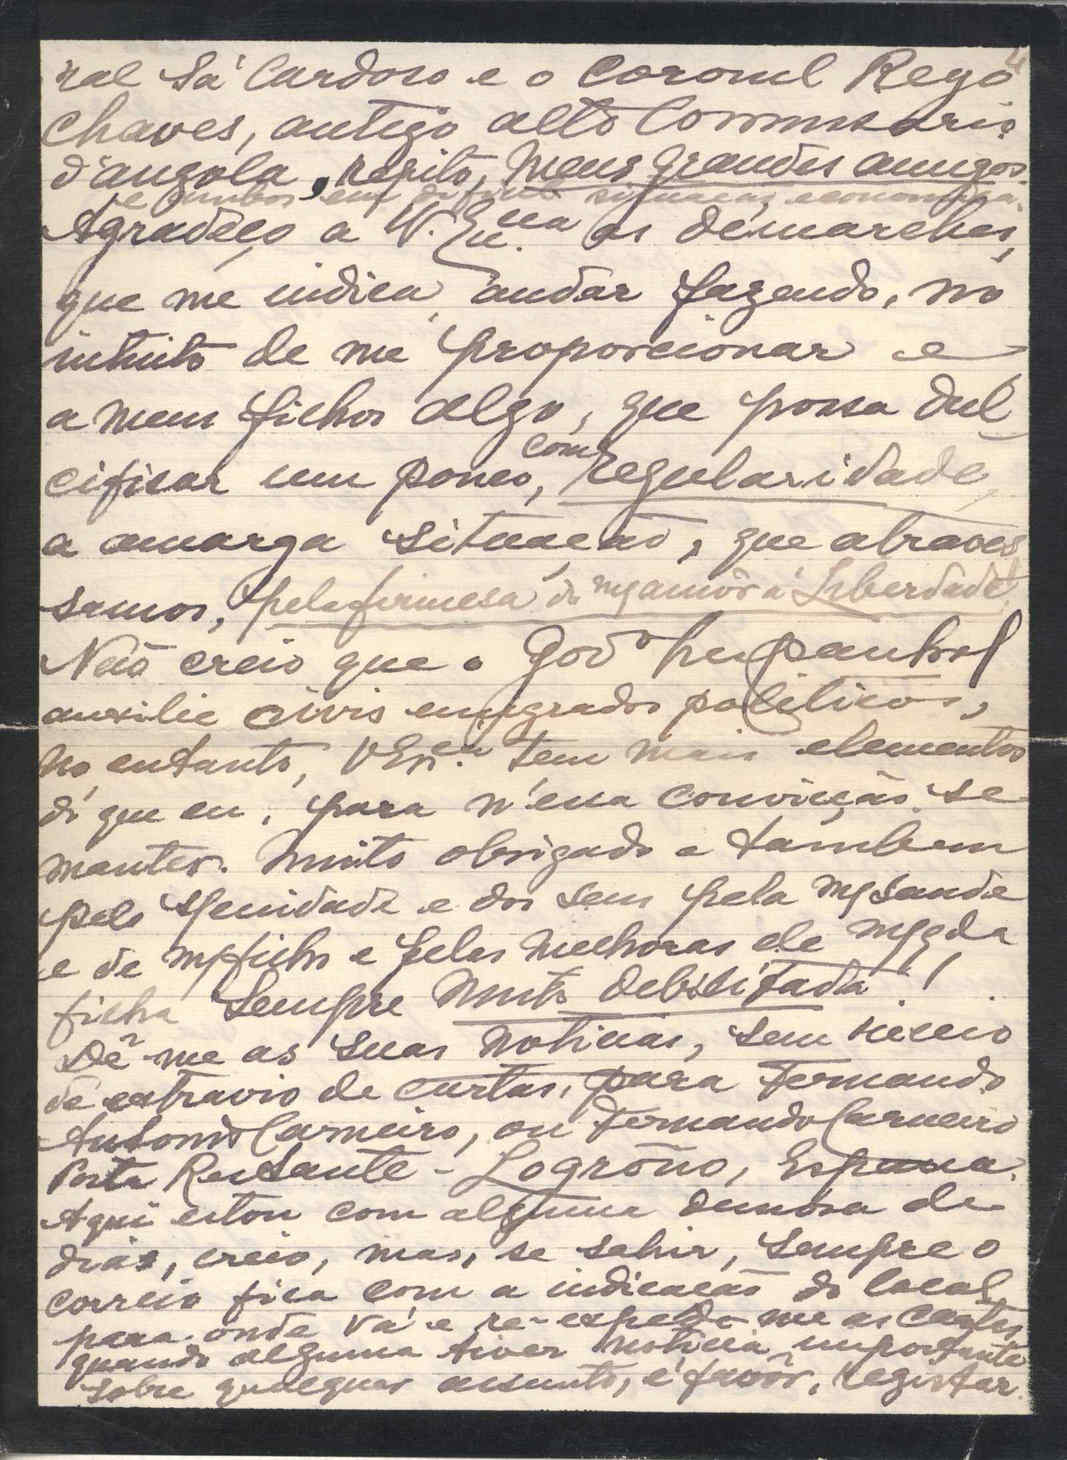 4
ral Sá Cardoso e o Coronel Rego
Chaves, antigo alto Commissario
d'angola, repito, meus grandes amigos
e ambos em difficil situação economica.
Agradeço a V. Exª. as démarches,
que me indica andar fazendo, no
intuito de me proporcionar e
a meus filhos algo, que possa dul
cificar um pouco, com regularidade,
a amarga situação, que atraves
samos, pela firmesa do mº amôr á Liberdade!
Não creio que o Govº hespanhol
auxilie civis emigrados politicos,
no entanto, V Exª. tem mais elementos
do que eu, para n'essa convicção se
manter. Muito obrigado a tambem
pelo e dos seus pela mª saude
e de mº filho e pelas melhoras de mª qda
filha sempre muito debilitada!
Dê-me as suas noticias, sem receio
de extravio de cartas, para Fernando
Antonio Carneiro, ou Fernando Carneiro
Posta Restante - Logroño, España.
Aqui estou com alguma demora de
dias, creio, mas, se sahir, sempre o
correio fica com a indicação do local,
para onde vá e re-expede-me as cartas,
quando alguma tiver noticia importante
sobre qualquer assunto, é favôr, registar.